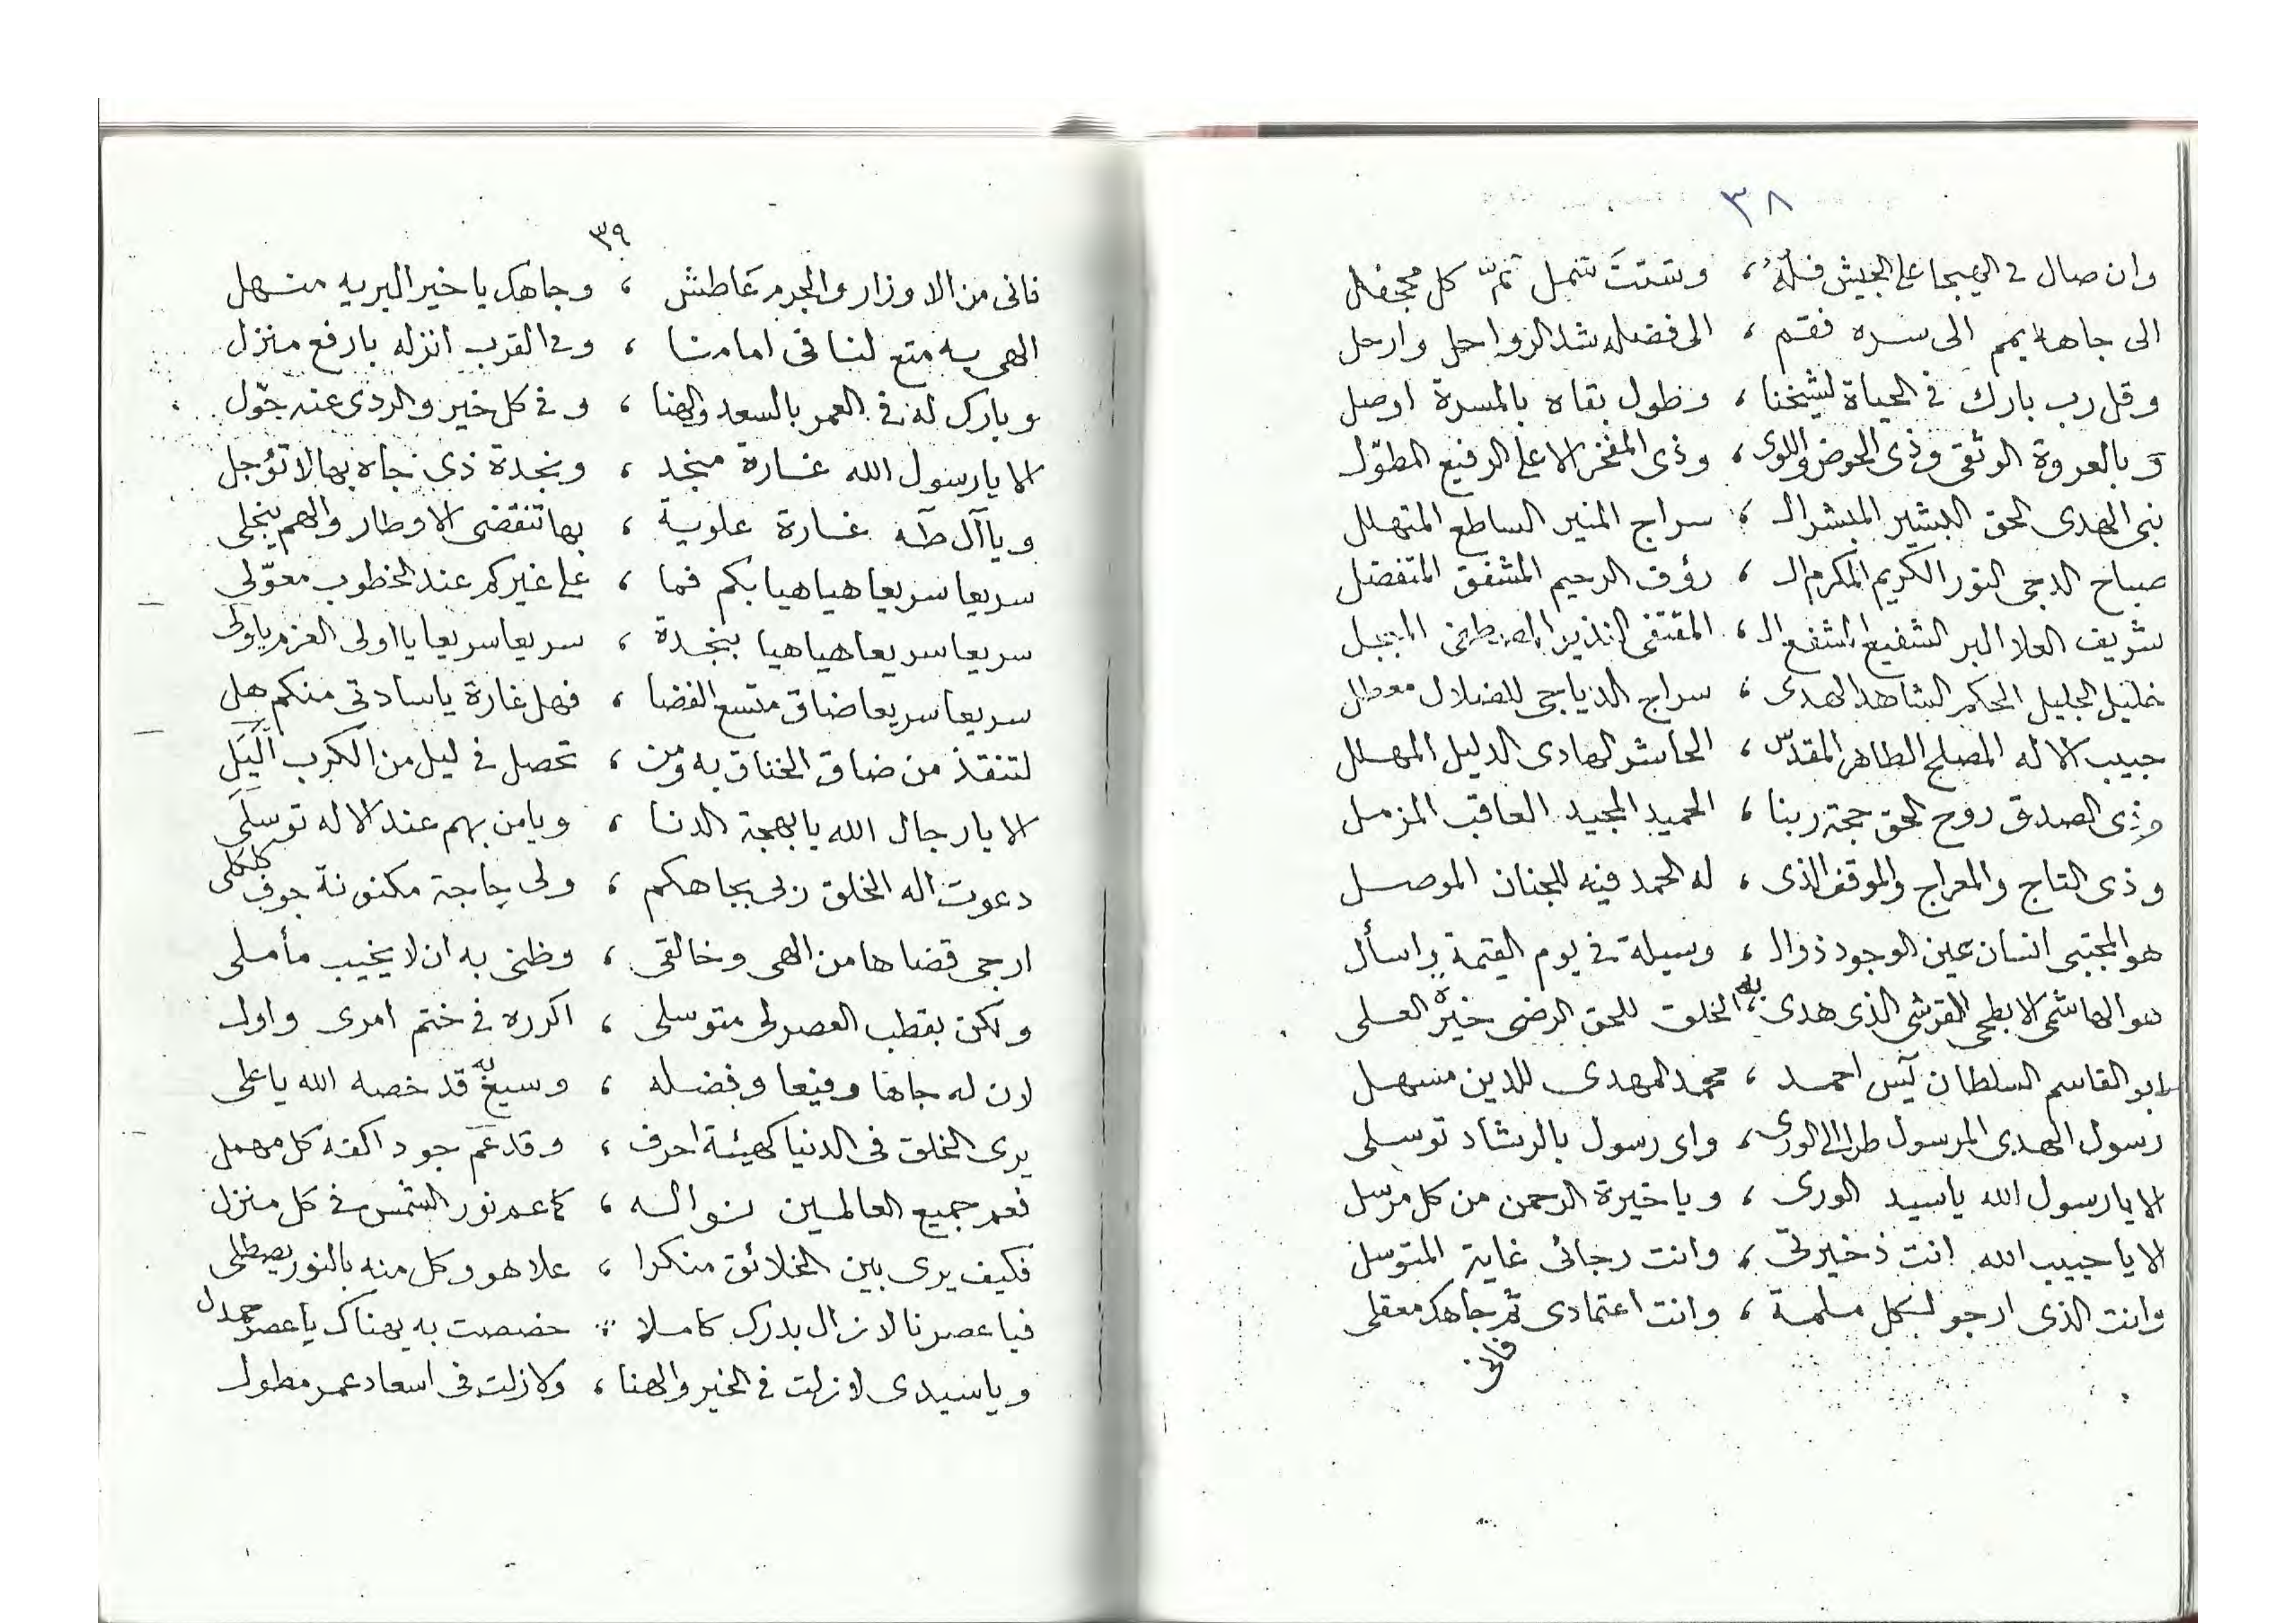 ٣٨
وان صال فى الهيجا على الجيش فله ، وشتت شمل ثمّ كل مجحفل
الى جاهه يمم الى سره فقم ، الى فضله شد الرواحل وارحل
وقل رب بارك فى الحياة لشيخنا ، وطول بقاه بالمسرة اوصل
وبالعروة الوثقى وذى الحوض واللوى ، وذى المفخر الاعلى الرفيع المطوّل
نبى الهدى الحق البشير المبشر الـ ، سراج المنير الساطع المتهلل
صباح الدجى النور الكريم المكرم الـ ، رؤف الرحيم المشفق المتفضل
شريف العلا البر الشفيع المشفع الـ ، المقتفى النذير المصطفى المبجل
خليل الجليل المحكم الشاهد الهدى ، سراج الدياجى للضلال معطل
حبيب الاله المصلح الطاهر المقدّس ، الحاشر الهادى الدليل المهلل
وذى الصدق روح الحق حجة ربنا ، الحميد المجيد العاقب المزمل
وذى التاج والمعراج والموقف الذى ، له الحمد فيه للجنان الموصل
هو المجتبى انسان عين الوجود ذوال ، وسيلة فى يوم القيمة واسأل
هو الهاشمى الابطحى القرشى الذى هدى ، به الخلق للحق الرضى خيرة العلى
ابو القاسم السلطان يٓس احمد ، محمد المهدى للدين مسهل
رسول الهدى المرسول طرا الى الورى ، واى رسول بالرشاد توسلى
الا يا رسول الله يا سيد الورى ، ويا خيرة الرحمن من كل مرسل
الا يا حبيب الله انت ذخيرتى ، وانت رجائى غاية المتوسل
وانت الذى ارجو لكل ملمة ، وانت اعتمادى ثم جاهك معقلى
فانى
٣٩
فانى من الاوزار والجرم عَاطش ، وجاهك يا خير البريه منهل
الهى به متع لنا فى امامنا ، وفى القرب انزله بارفع منزل
وبارك له فى العمر بالسعد والهنا ، وفى كل خير والردى عنه حّول
الا يا رسول الله غارة منجد ، ونجدة ذى جاه بها لا تؤجل
ويا آل طٓه غارة علوية ، بها تنقضى الاوطار والهم ينجلى
سريعا سريعا هيا هيا بكم فما ، على غيركم عند الخطوب معوّلى
سريعا سريعا هيا هيا بنجدة ، سريعا سريعا يا اولى العزم يا ولى
سريعا سريعا ضاق متسع الفضا ، فهل غارة يا سادتى منكم هل
لتنقذ من ضاق الخناق به ومن ، تحصل فى ليل من الكرب اَليَل
الا يا رجال الله يا بهجة الدنا ، ويا من بهم عند الاله توسلى
دعوت اله الخلق ربى بجاهكم ، ولى حاجة مكنونة جوف كلكلى
ارجى قضاها من الهى وخالقى ، وظنى به ان لا يخيب مأملى
ولكن بقطب العصر لى متوسلى ، اكرره فى ختم امرى واول
لان له جاها وفيعا وفضله ، وسيع به قد خصه الله يا على
يرى الخلق فى الدنيا كهيئة احرف ، وقد عَم جود اكفه كل مهمل
فعم جميع العالمين نواله ، كما عم نور الشمس فى كل منزل
فكيف يرى بين الخلائق منكرا ، علاه وكل منه بالنور يصطلى
فيا عصرنا لا زال بدرك كاملا ، خصصت به يهناك يا عصر حمدل
ويا سيدى لا زلت فى الخير والهنا ، ولا زلت فى اسعاد عمر مطول